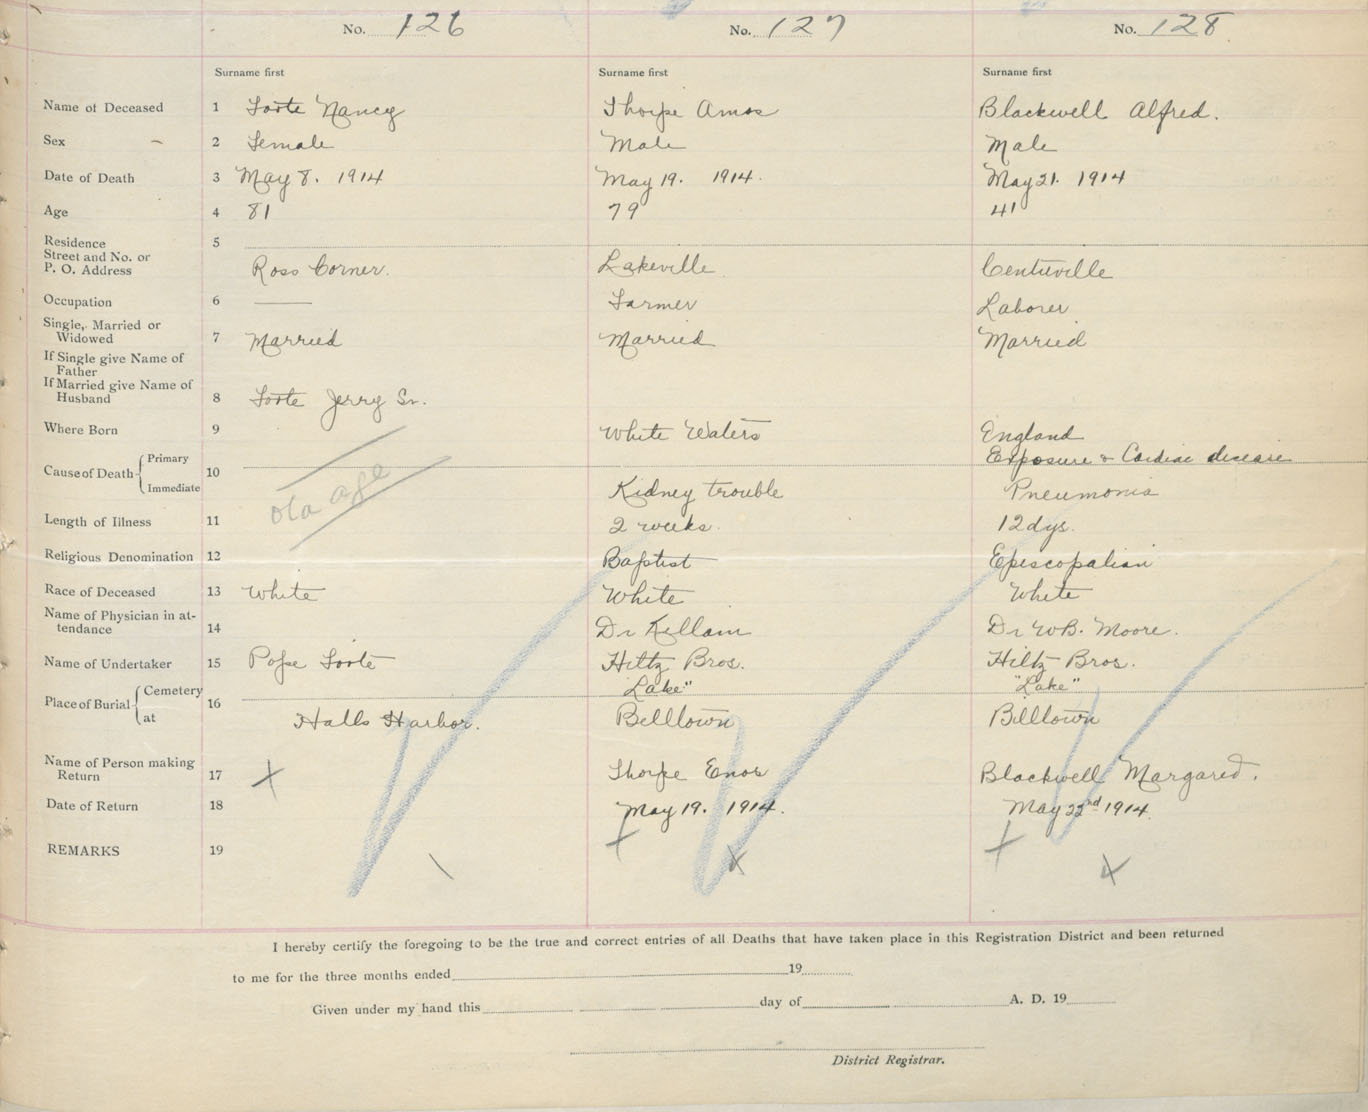 No. 126 No. 127 No. 128
Surname first Surname first Surname first
Name of Deceased 1 Foote Nancy Thorpe Amos Blackwell Alfred.
Sex 2 Female Male Male
Date of Death 3 May 8. 1914 May 19. 1914. May 21. 1914
Age 4 81 79 41
Residence 5
Street and No. or
P. O. Address Ross Corner. Lakeville Centreville
Occupation 6 —— Farmer Laborer
Single, Married or
Widowed 7 Married Married Married
If Single give Name of
Father
If Married give Name of
Husband 8 Foote Jerry Sr.
Where Born 9 White Waters England
Cause of Death Primary 10 Exposure & Cardiac disease
Immediate old age Kidney trouble Pneumonia
Length of Illness 11 2 weeks. 12 dys.
Religious Denomination 12 Baptist Episcopalian
Race of Deceased 13 White White White
Name of Physician in at-
tendance 14 Dr Killam Dr W.B. Moore.
Name of Undertaker 15 Pope Foote Hiltz Bros. Hiltz Bros.
Place of Burial Cemetery 16 "Lake" "Lake"
at Halls Harbor. Billtown Billtown
Name of Person making
Return 17 x Thorpe Enos Blackwell Margared.
Date of Return 18 May 19. 1914. May 22nd 1914.
REMARKS 19 x x
I hereby certify the foregoing to be the true and correct entries of all Deaths that have taken place in this Registration District and been returned
to me for the three months ended 19
Given under my hand this day of A. D. 19
District Registrar.